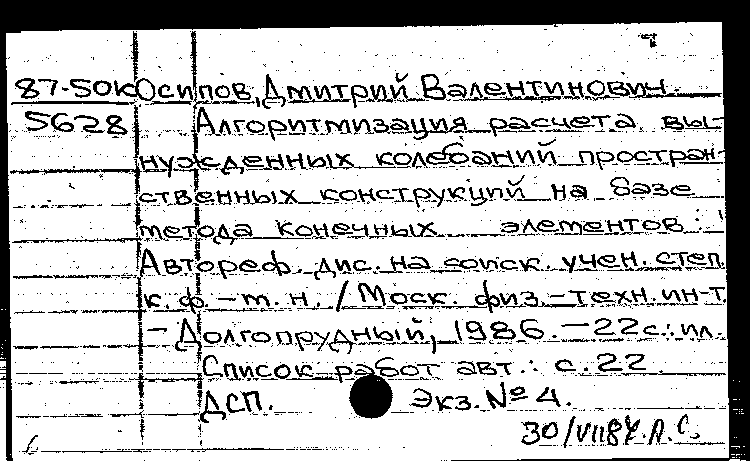 87-50к Осипов, Дмитрий Валентинович.
5628 Алгоритмизация расчета вы-
нужденных колебаний простран-
ственных конструкций на базе
метода конечных элементов:
Автореф. дис. на соиск. учен. степ.
к. ф.-т. н. / Моск. физ.-техн. ин-т.
- Долгопрудный, 1986. - 22 с.: ил.
Список работ авт.: с. 22.
ДСП. Экз. № 4.
30/VII87. А.С.